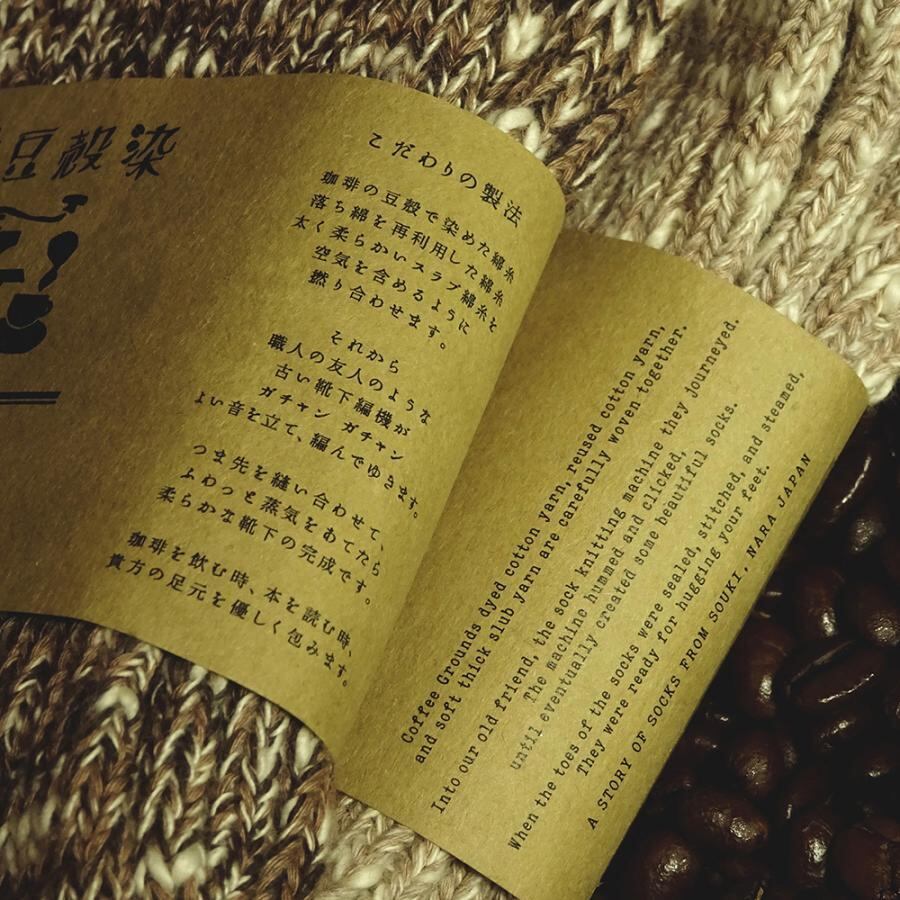 豆殻染
こだわりの製法
珈琲の豆殻で染めた綿糸
落ち綿を再利用した綿糸
太く柔らかいスラブ綿糸と
空気を含めるように
撚り合わせます。
それから
職人の友人のような
古い靴下編機が
ガチャン ガチャン
よい音を立て、編んでゆきます。
つま先を縫い合わせて、
ふわっと蒸気をあてたら
柔らかな靴下の完成です。
珈琲を飲む時、本を読む時、
貴方の足元を優しく包みます。
Coffee Grounds dyed cotton yarn, reused cotton yarn,
and soft thick slub yarn are carefully woven together.
Into our old friend, the sock knitting machine they journeyed.
The machine hummed and clicked,
until eventually created some beautiful socks.
When the toes of the socks were sealed, stitched, and steamed,
They were ready for hugging your feet.
A STORY OF SOCKS FROM SOUKI, NARA JAPAN